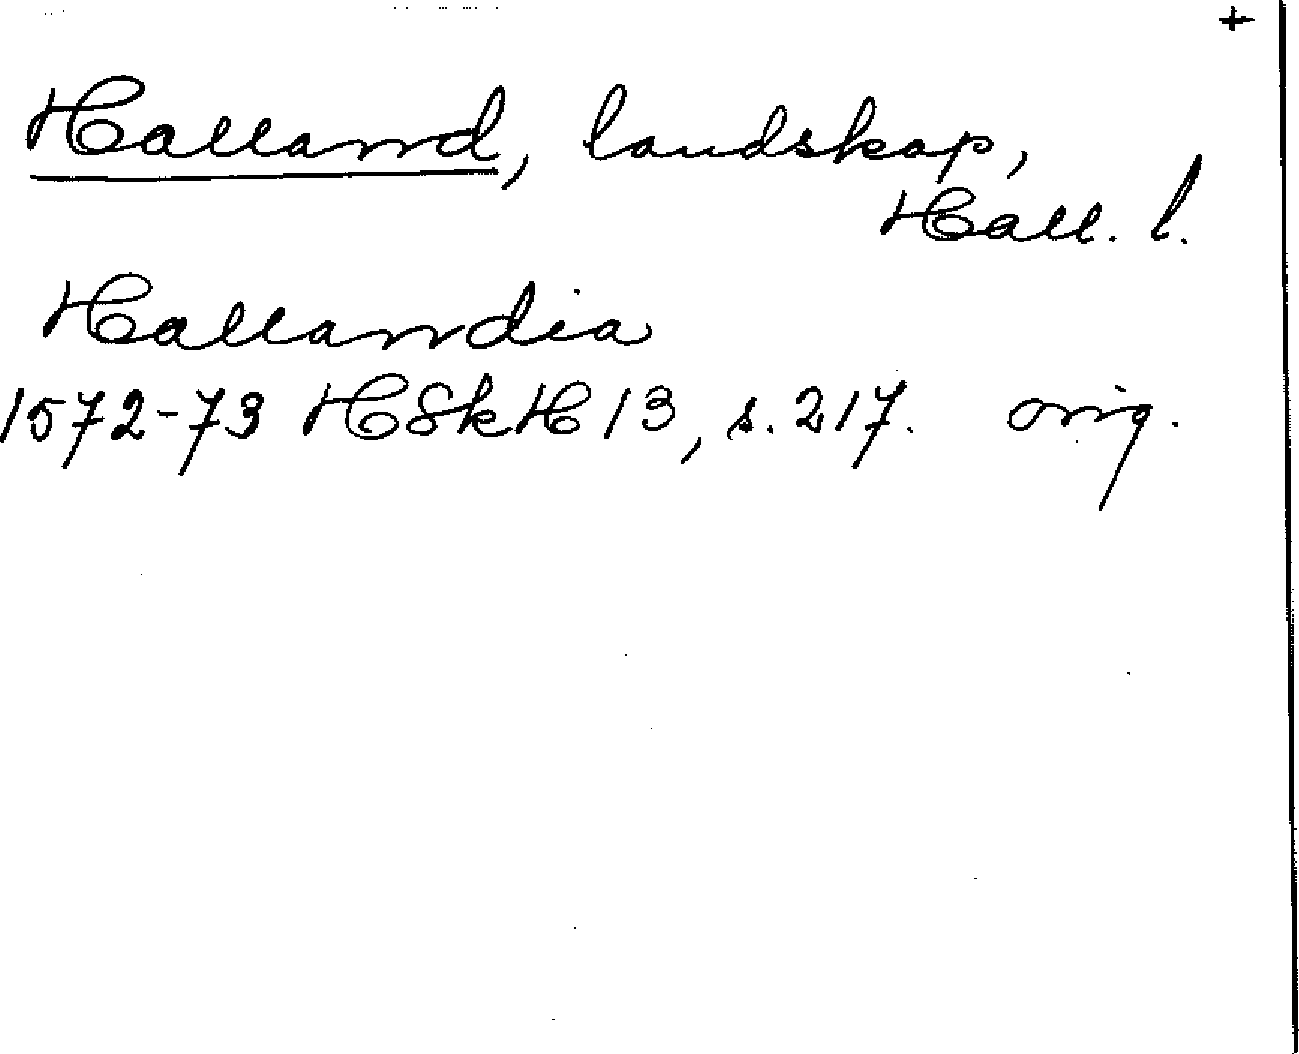 +
Halland, landskap,
Hall. l.
Hallandia
1572-73 HSkH 13, s. 217. orig.